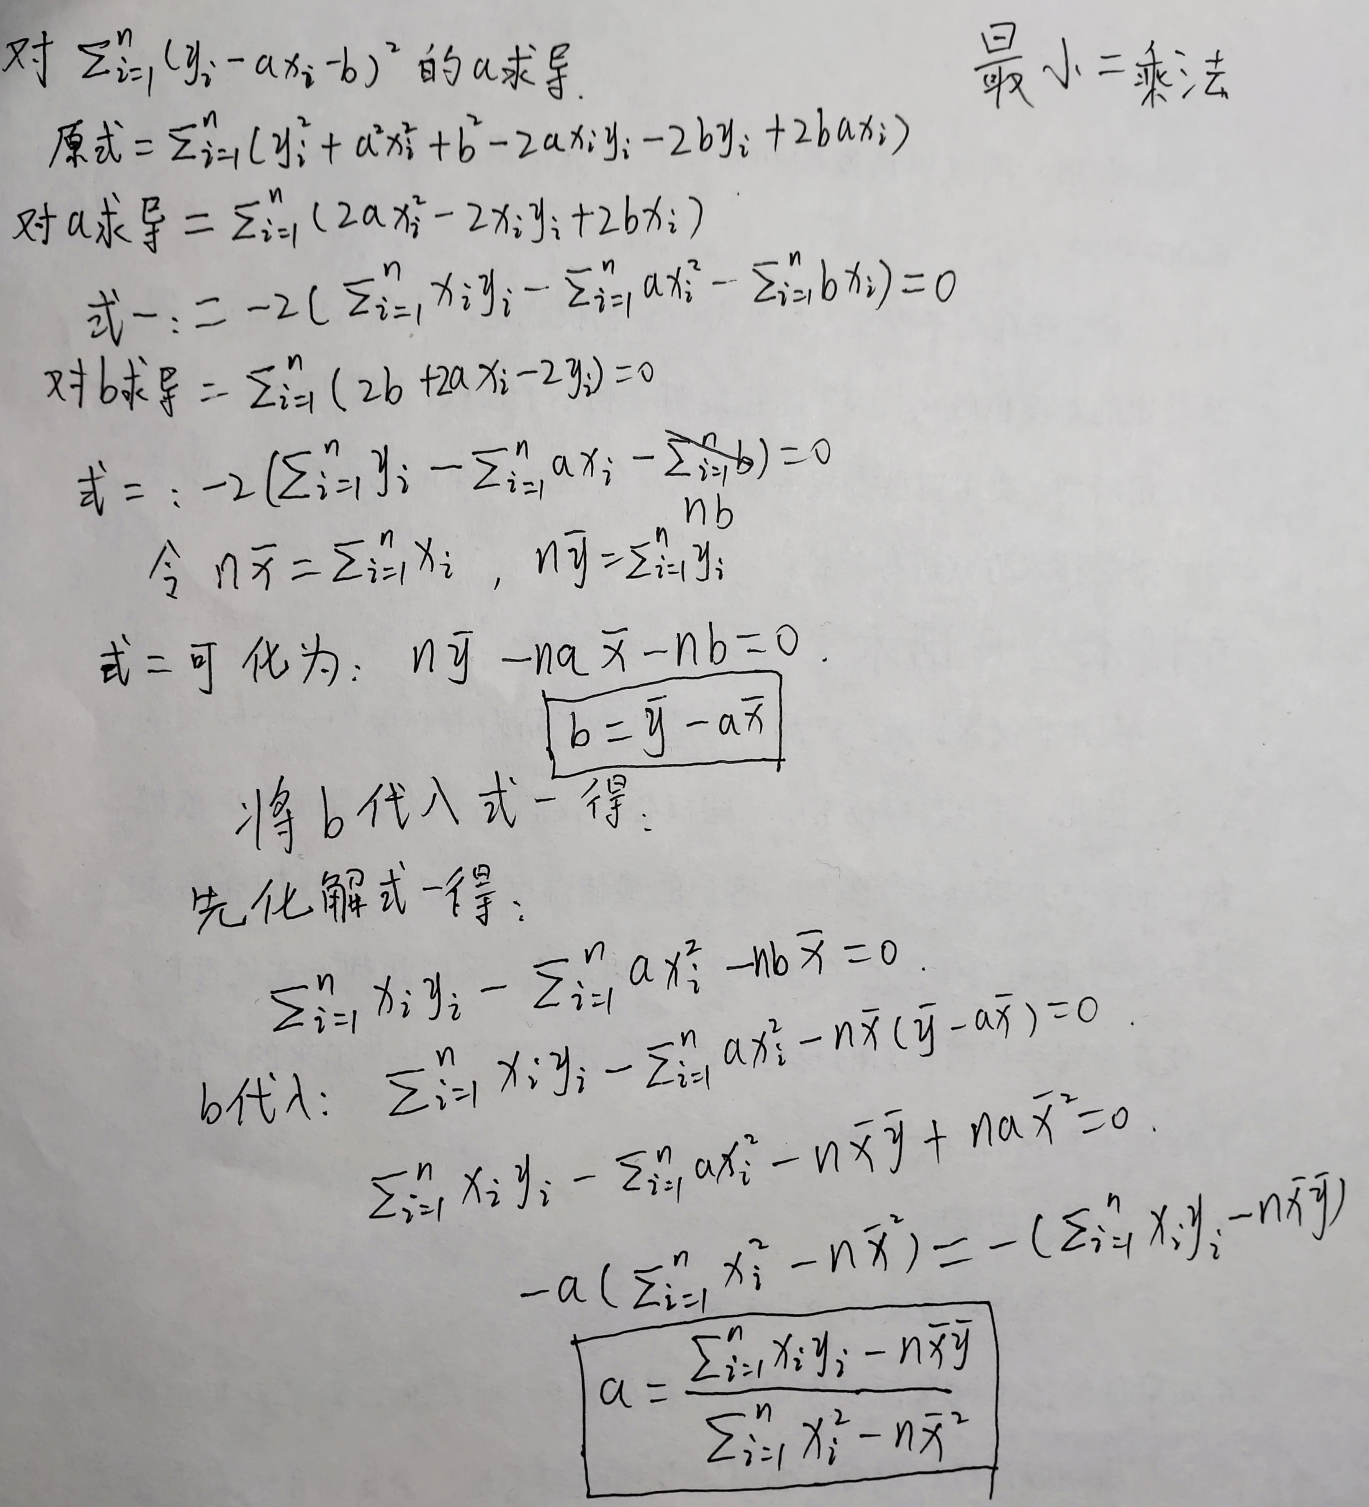 最小二乘法
对 ∑ᵢ₌₁ⁿ(yᵢ-axᵢ-b)² 的a求导.
原式=∑ᵢ₌₁ⁿ(yᵢ²+a²xᵢ²+b²-2axᵢyᵢ-2byᵢ+2baxᵢ)
对a求导=∑ᵢ₌₁ⁿ(2axᵢ²-2xᵢyᵢ+2bxᵢ)
式一:=-2(∑ᵢ₌₁ⁿxᵢyᵢ-∑ᵢ₌₁ⁿaxᵢ²-∑ᵢ₌₁ⁿbxᵢ)=0
对b求导=∑ᵢ₌₁ⁿ(2b+2axᵢ-2yᵢ)=0
式二:-2(∑ᵢ₌₁ⁿyᵢ-∑ᵢ₌₁ⁿaxᵢ-∑ᵢ₌₁ⁿb)=0
nb
令 nx̄=∑ᵢ₌₁ⁿxᵢ, nȳ=∑ᵢ₌₁ⁿyᵢ
式二可化为: nȳ-nax̄-nb=0.
b=ȳ-ax̄
将b代入式一得:
先化解式一得:
∑ᵢ₌₁ⁿxᵢyᵢ-∑ᵢ₌₁ⁿaxᵢ²-nbx̄=0.
b代入: ∑ᵢ₌₁ⁿxᵢyᵢ-∑ᵢ₌₁ⁿaxᵢ²-nx̄(ȳ-ax̄)=0.
∑ᵢ₌₁ⁿxᵢyᵢ-∑ᵢ₌₁ⁿaxᵢ²-nx̄ȳ+nax̄²=0.
-a(∑ᵢ₌₁ⁿxᵢ²-nx̄²)=-(∑ᵢ₌₁ⁿxᵢyᵢ-nx̄ȳ)
a=
∑ᵢ₌₁ⁿxᵢyᵢ-nx̄ȳ
∑ᵢ₌₁ⁿxᵢ²-nx̄²